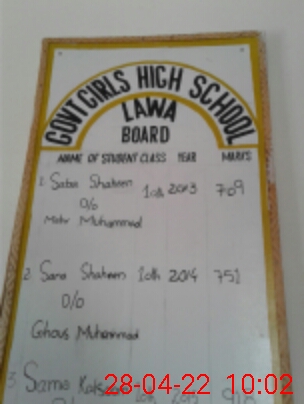 GOVT GIRLS HIGH SCHOOL
LAWA
BOARD
NAME OF STUDENT CLASS YEAR MARKS
1. Saba Shaheen 10th 2013 709
D/o
Mehr Muhammad
2. Sana Shaheen 10th 2014 751
D/o
Ghous Muhammad
3.
28-04-22 10:02